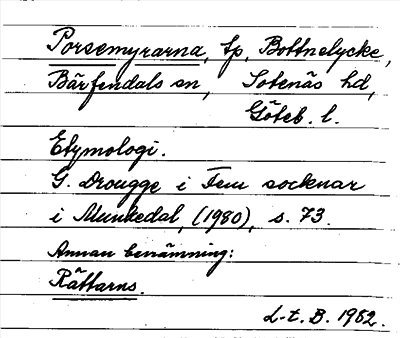 Porsemyrarna, tp, Bottnelycke,
Bärfendals sn, Sotenäs hd,
Göteb. l.
Etymologi.
G. Drougge i Fem socknar
i Munkedal, (1980), s. 73.
Annan benämning:
Rättarns.
L-t. B. 1982.